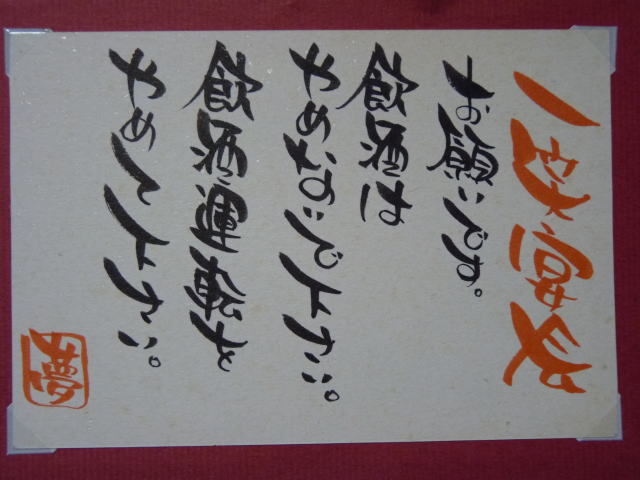 お願いです。
飲酒は
やめないで下さい。
飲酒運転を
やめて下さい。
夢